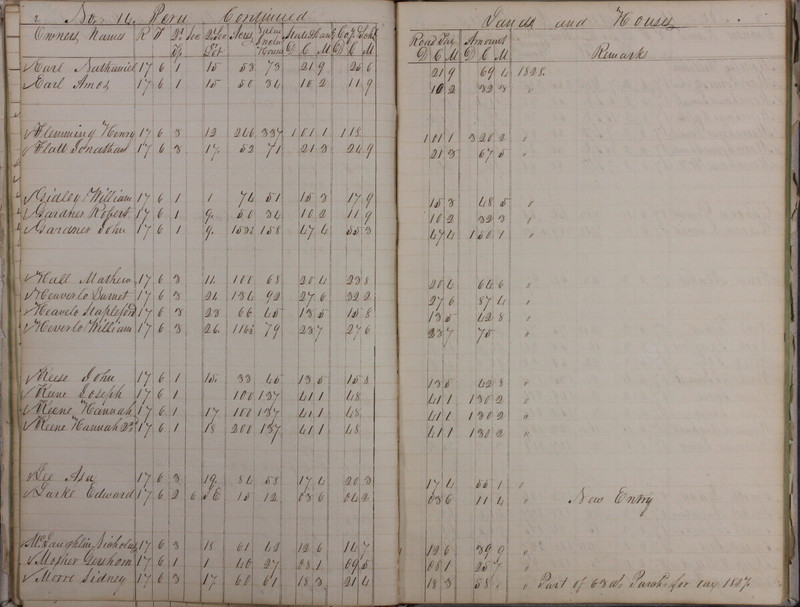 2 No. 14. Peru Continued Lands and Houses
Owners Names R T Acres State & County Road Tax Amount Remarks
D C M D C M D C M D C M
Earl Nathaniel 17 6 1 15 53 73 21 9 25 6 21 9 69 4 1828.
Earl Amos 17 6 1 15 50 34 10 2 11 9 10 2 32 3 "
Flemming Henry 17 6 3 12 246 337 1 01 1 1 18 1 01 1 3 20 2 "
Flatt Jonathan 17 6 3 17 52 71 21 3 24 9 21 3 67 5 "
Gidley William 17 6 1 1 74 51 15 3 17 9 15 3 48 5 "
Gardner Robert 17 6 1 9 50 34 10 2 11 9 10 2 32 3 "
Gardner John 17 6 1 9 153 158 47 4 55 3 47 4 1 50 1 "
Hall Mathew 17 6 3 11 100 68 20 4 23 8 20 4 64 6 "
Heaverlo Burnet 17 6 3 26 134 92 27 6 32 2 27 6 87 4 "
Heavelo Stapleford 17 6 3 23 66 45 13 5 15 8 13 5 42 8 "
Heverlo William 17 6 3 26 116 79 23 7 27 6 23 7 75 "
Keese John 17 6 1 15 33 45 13 5 15 8 13 5 42 8 "
Kune Joseph 17 6 1 100 137 41 1 48 41 1 1 30 2 "
Keene Hannah 17 6 1 17 100 137 41 1 48 41 1 1 30 2 "
Keene Hannah 17 6 1 18 200 137 41 1 48 41 1 1 30 2 "
Lee Asa 17 6 3 19 84 58 17 4 20 3 17 4 55 1 "
Larke Edward 17 6 2 6 15 12 03 6 04 2 03 6 11 4 " New Entry
McLaughlin Nicholas 17 6 3 18 61 42 12 6 14 7 12 6 39 9 "
Mosher Gershom 17 6 1 1 40 27 08 1 09 5 08 1 25 7 "
Morre Sidney 17 6 3 17 60 61 18 3 21 4 18 3 58 " Part of 63 for 1827